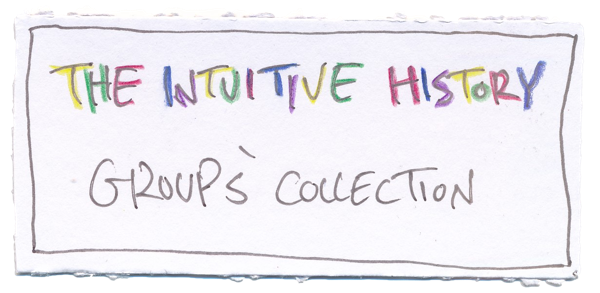 THE INTUITIVE HISTORY
GROUP`S COLLECTION